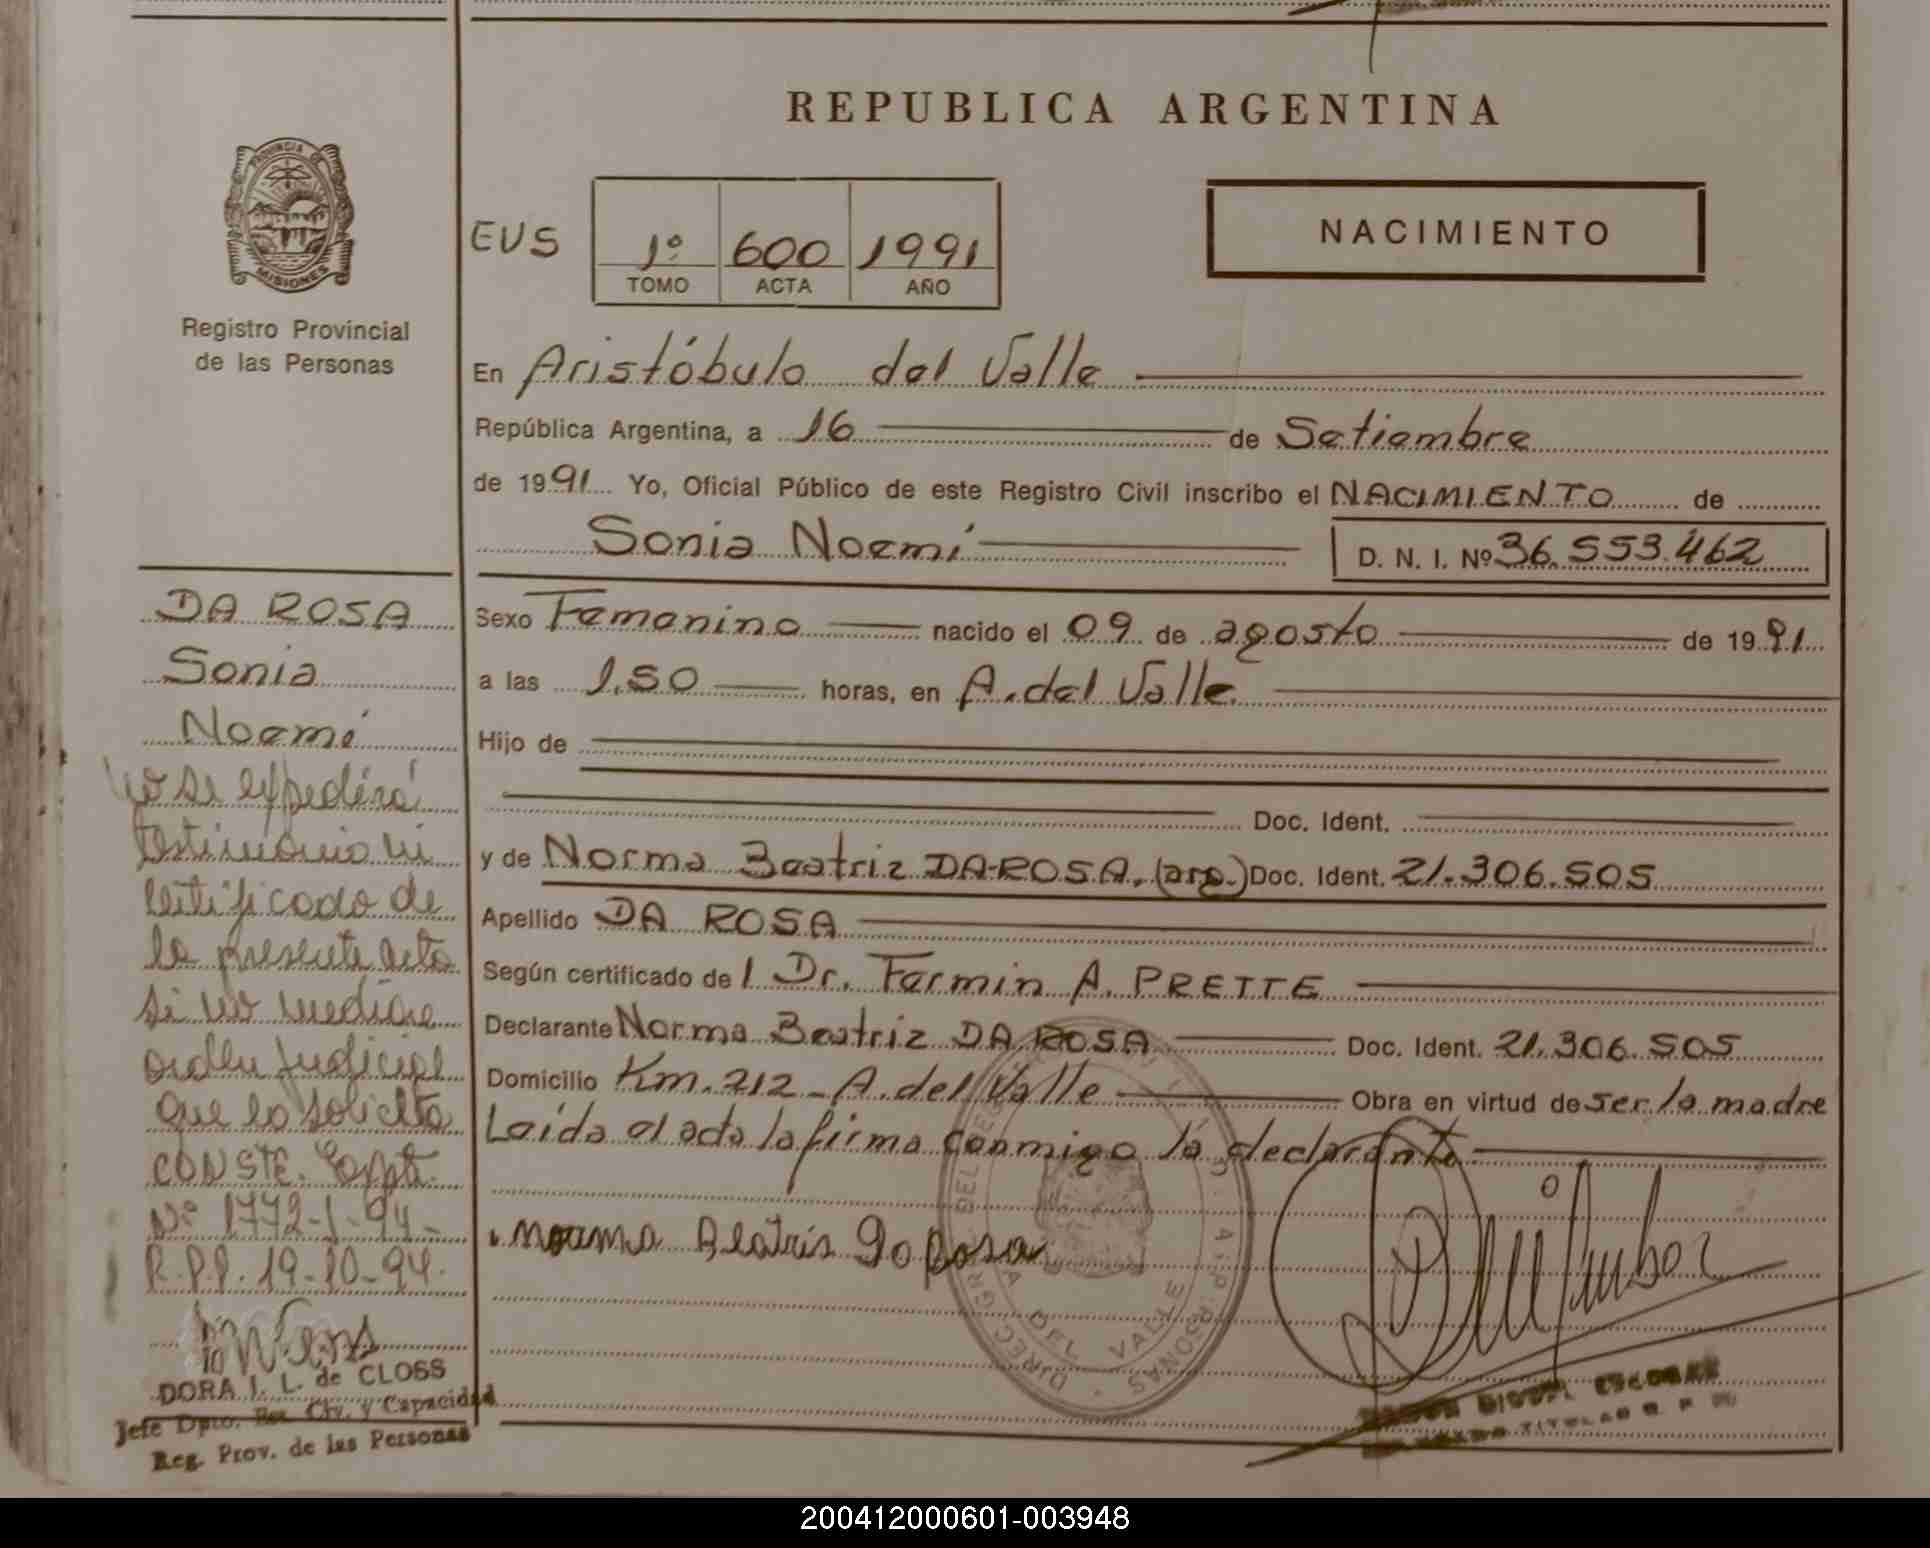 REPUBLICA ARGENTINA
PROVINCIA DE
MISIONES
Registro Provincial
de las Personas
EUS
1º 600 1991
TOMO ACTA AÑO
NACIMIENTO
En Aristóbulo del Valle
República Argentina, a 16 de Setiembre
de 1991 Yo, Oficial Público de este Registro Civil inscribo el NACIMIENTO de
Sonia Noemí D. N. I. Nº 36.553.462
Sexo Femenino nacido el 09 de agosto de 1991
a las 1,50 horas, en A. del Valle
Hijo de
Doc. Ident.
y de Norma Beatriz DA ROSA, (arg.) Doc. Ident. 21.306.505
Apellido DA ROSA
Según certificado de l Dr. Fermin A. PRETTE
Declarante Norma Beatriz DA ROSA Doc. Ident. 21.306.505
Domicilio Km. 212 - A. del Valle Obra en virtud de ser la madre
Leída el acta la firma conmigo la declarante
Norma Beatris Da Rosa
DEL VALLE
DA ROSA
Sonia
Noemí
No se expedirá
testimonio ni
certificado de
la presente acta
si no mediare
orden judicial
que lo solicite
CONSTE. Expte.
Nº 1772-1-94-
R.P.P. 19-10-94.
DORA I. L. de CLOSS
Jefe Dpto. Est. Civ. y Capacidad
Reg. Prov. de las Personas
200412000601-003948